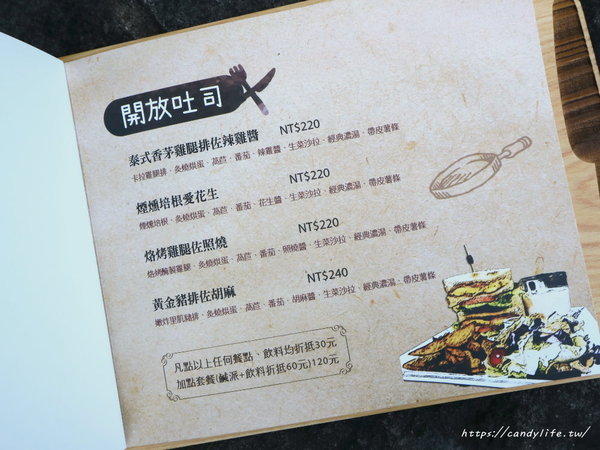 開放吐司
泰式香茅雞腿排佐辣雞醬 NT$220
卡拉雞腿排、炙燒烘蛋、萵苣、番茄、辣雞醬、生菜沙拉、經典濃湯、帶皮薯條
煙燻培根愛花生 NT$220
煙燻培根、炙燒烘蛋、萵苣、番茄、花生醬、生菜沙拉、經典濃湯、帶皮薯條
烙烤雞腿佐照燒 NT$220
烙烤醃製雞腿、炙燒烘蛋、萵苣、番茄、照燒醬、生菜沙拉、經典濃湯、帶皮薯條
黃金豬排佐胡麻 NT$240
嫩炸里肌豬排、炙燒烘蛋、萵苣、番茄、胡麻醬、生菜沙拉、經典濃湯、帶皮薯條
凡點以上任何餐點、飲料均折抵30元
加點套餐(鹹派+飲料折抵60元)120元
https://candylife.tw/